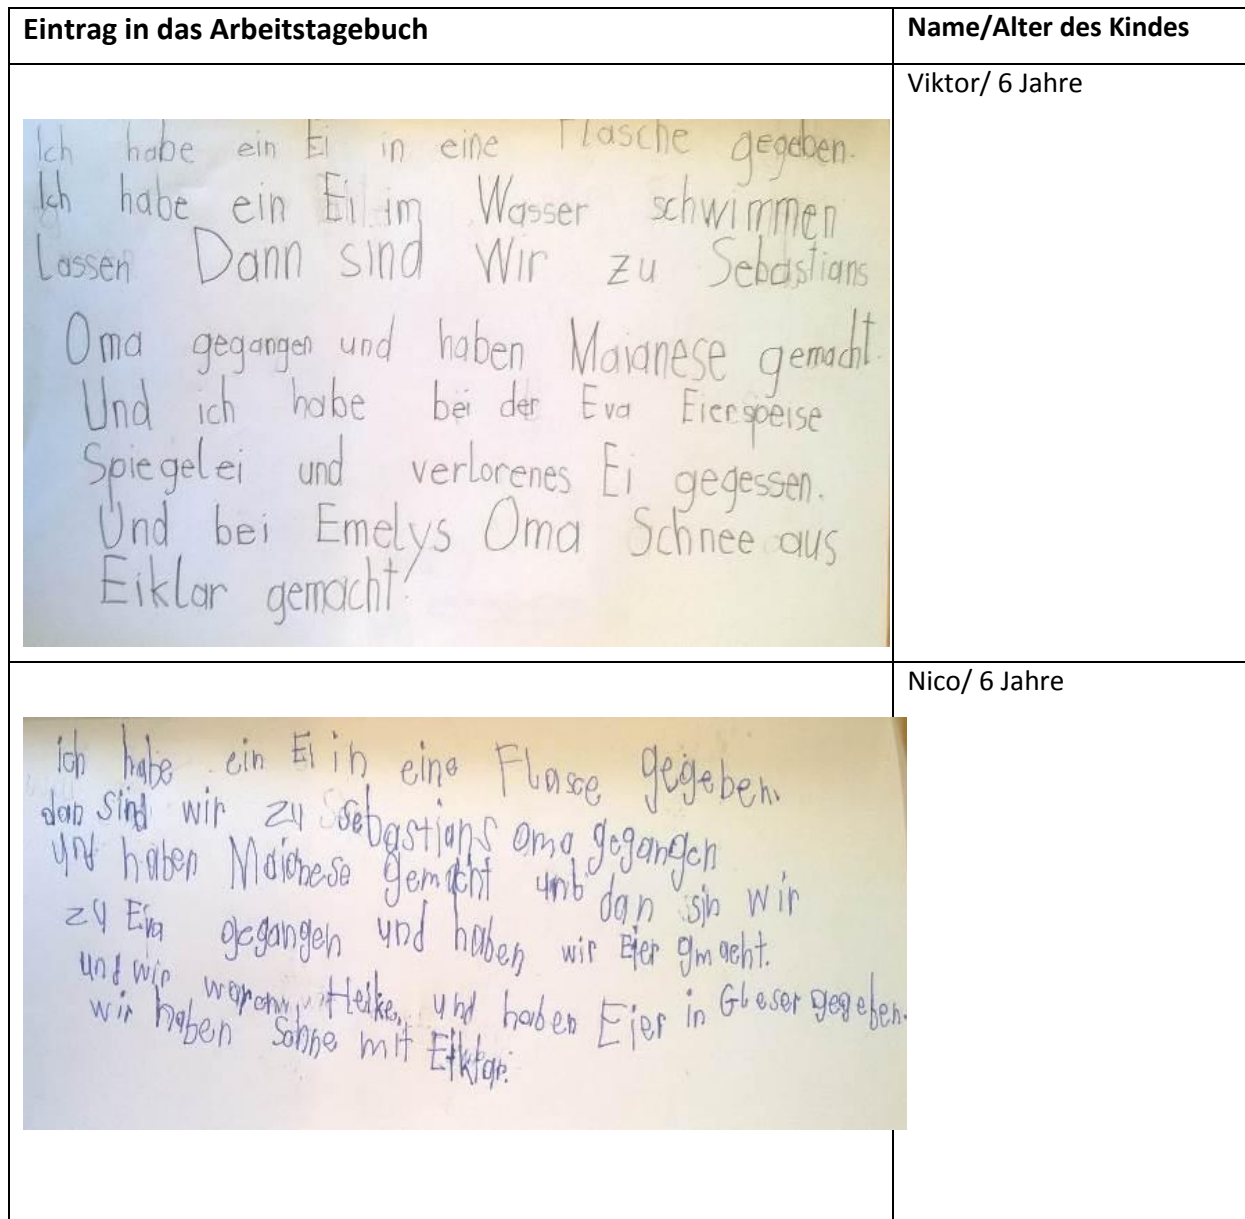 Eintrag in das Arbeitstagebuch
Name/Alter des Kindes
Viktor/ 6 Jahre
Ich habe ein Ei in eine Flasche gegeben.
Ich habe ein Ei im Wasser schwimmen
Lassen Dann sind Wir zu Sebastians
Oma gegangen und haben Maianese gemacht.
Und ich habe bei der Eva Eierspeise
Spiegelei und verlorenes Ei gegessen.
Und bei Emelys Oma Schnee aus
Eiklar gemacht!
Nico/ 6 Jahre
ich habe ein Ei in eine Flasce gegeben.
dan sind wir zu Sebastians oma gegangen
und haben Maionese gemacht und dan sin wir
zu Eva gegangen und haben wir Eier gmacht.
und wir waren Heike, und haben Eier in Gleser gegeben.
wir haben mit Eiklar.